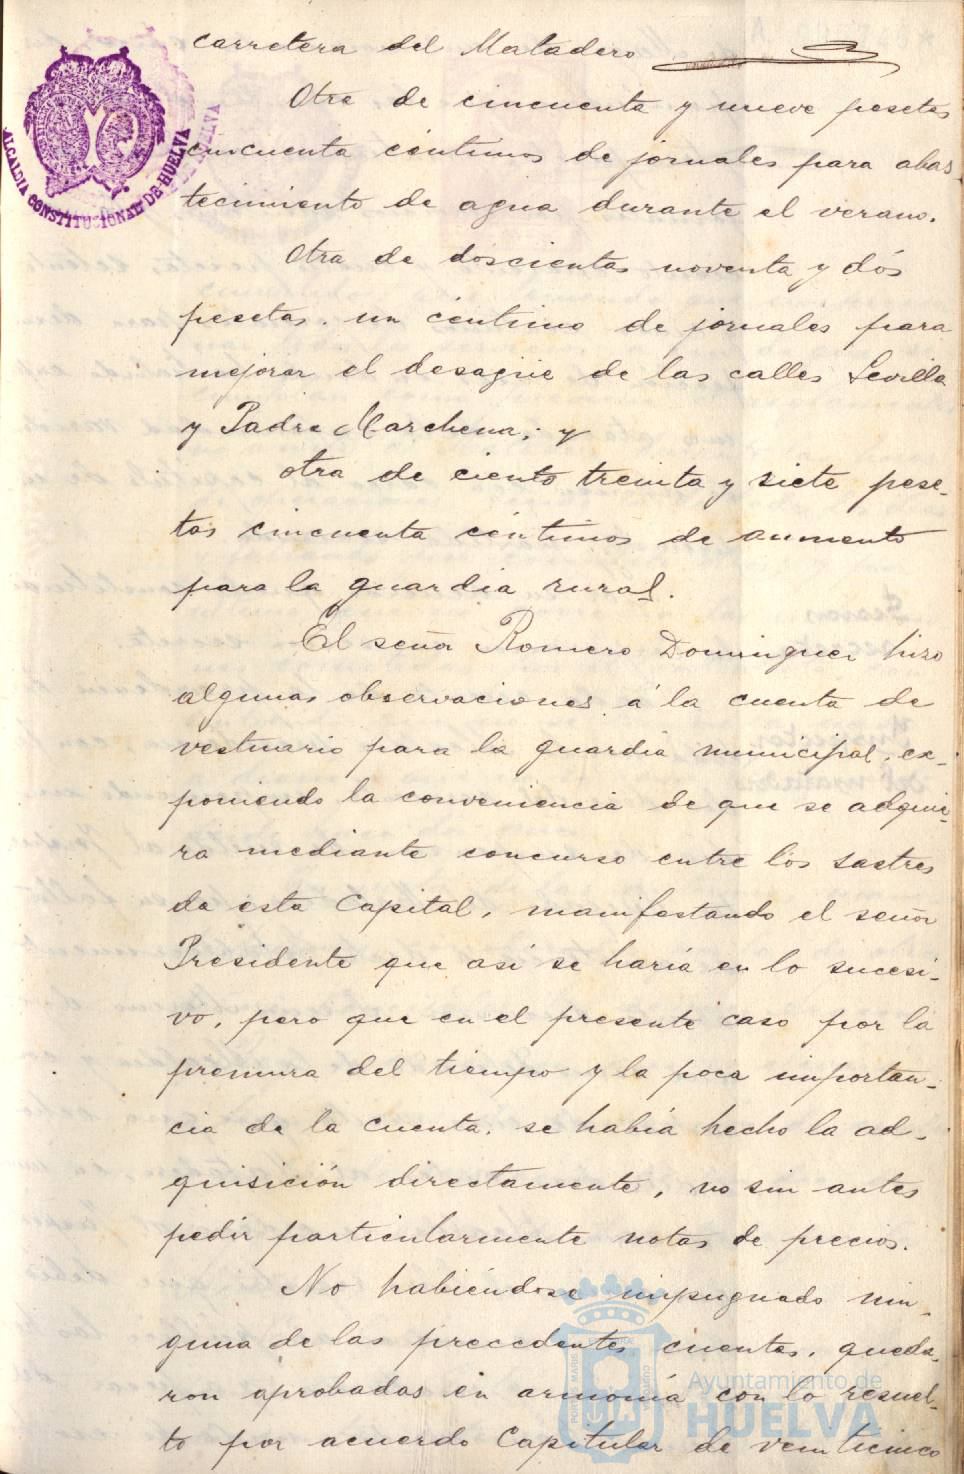 carretera del Matadero
Otra de cincuenta y nueve pesetas
cincuenta céntimos de jornales para abas
tecimiento de agua durante el verano.
Otra de doscientas noventa y dós
pesetas. un céntimo de jornales para
mejorar el desagüe de las calles Sevilla
y Padre Marchena; y
otra de ciento treinta y siete pese-
tas cincuenta céntimos de aumento
para la guardia rural.
El señor Romero Dominguez hizo
algunas observaciones á la cuenta de
vestuario para la guardia municipal, ex-
poniendo la conveniencia de que se adquie-
ra mediante concurso entre los sastres
de esta Capital, manifestando el señor
Presidente que así se haría en lo sucesi-
vo, pero que en el presente caso por la
premura del tiempo y la poca importan-
cia de la cuenta. se había hecho la ad-
quisición directamente, no sin antes
pedir particularmente notas de precios.
No habiéndose impugnado nin-
guna de las precedentes cuentas, queda-
ron aprobadas en armonía con lo resuel-
to por acuerdo Capitular de veinticinco
ALCALDIA CONSTITUCIONAL DE HUELVA
Ayuntamiento de
HUELVA